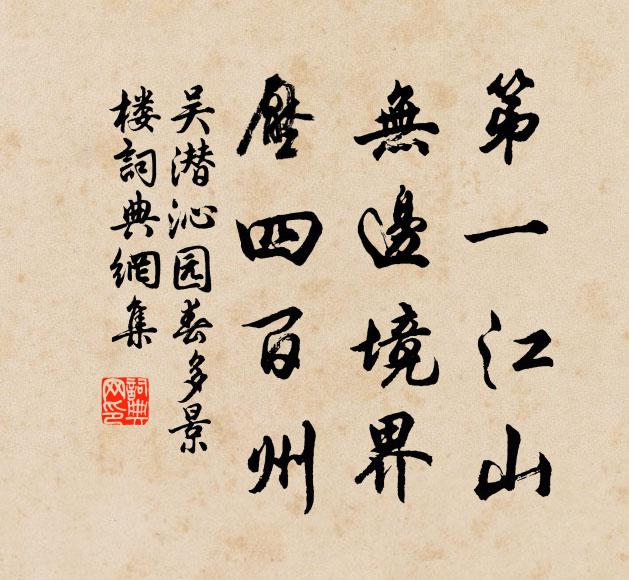 第一江山
無邊境界
壓四百州
吴潜沁园春多景
楼詞典網集
詞典
网印